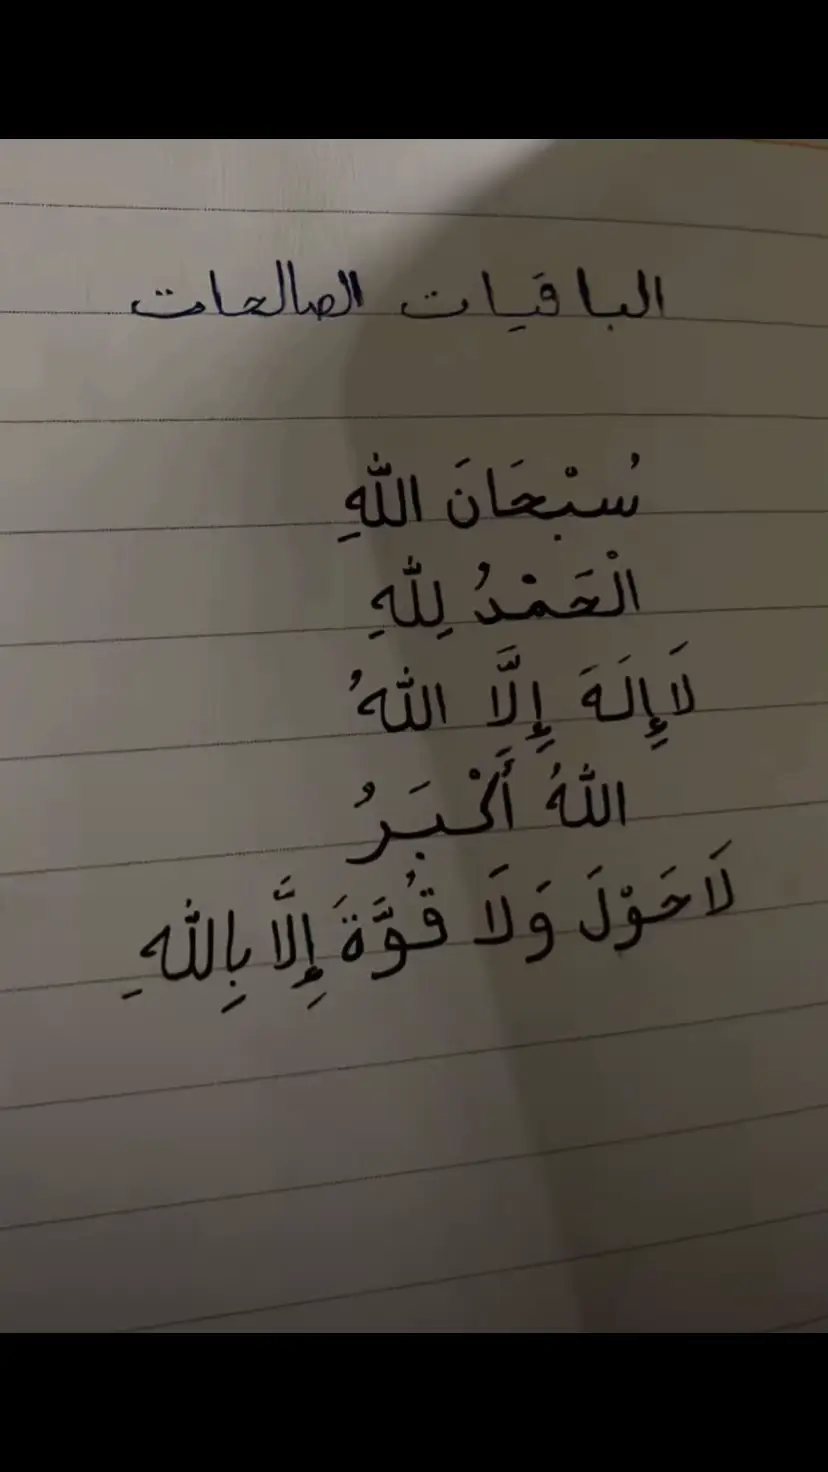 الباقيات الصالحات
سُبْحَانَ اللّٰهِ
الْحَمْدُ لِلّٰهِ
لَا إِلَهَ إِلَّا اللّٰهُ
اللّٰهُ أَكْبَرُ
لَا حَوْلَ وَلَا قُوَّةَ إِلَّا بِاللّٰهِ